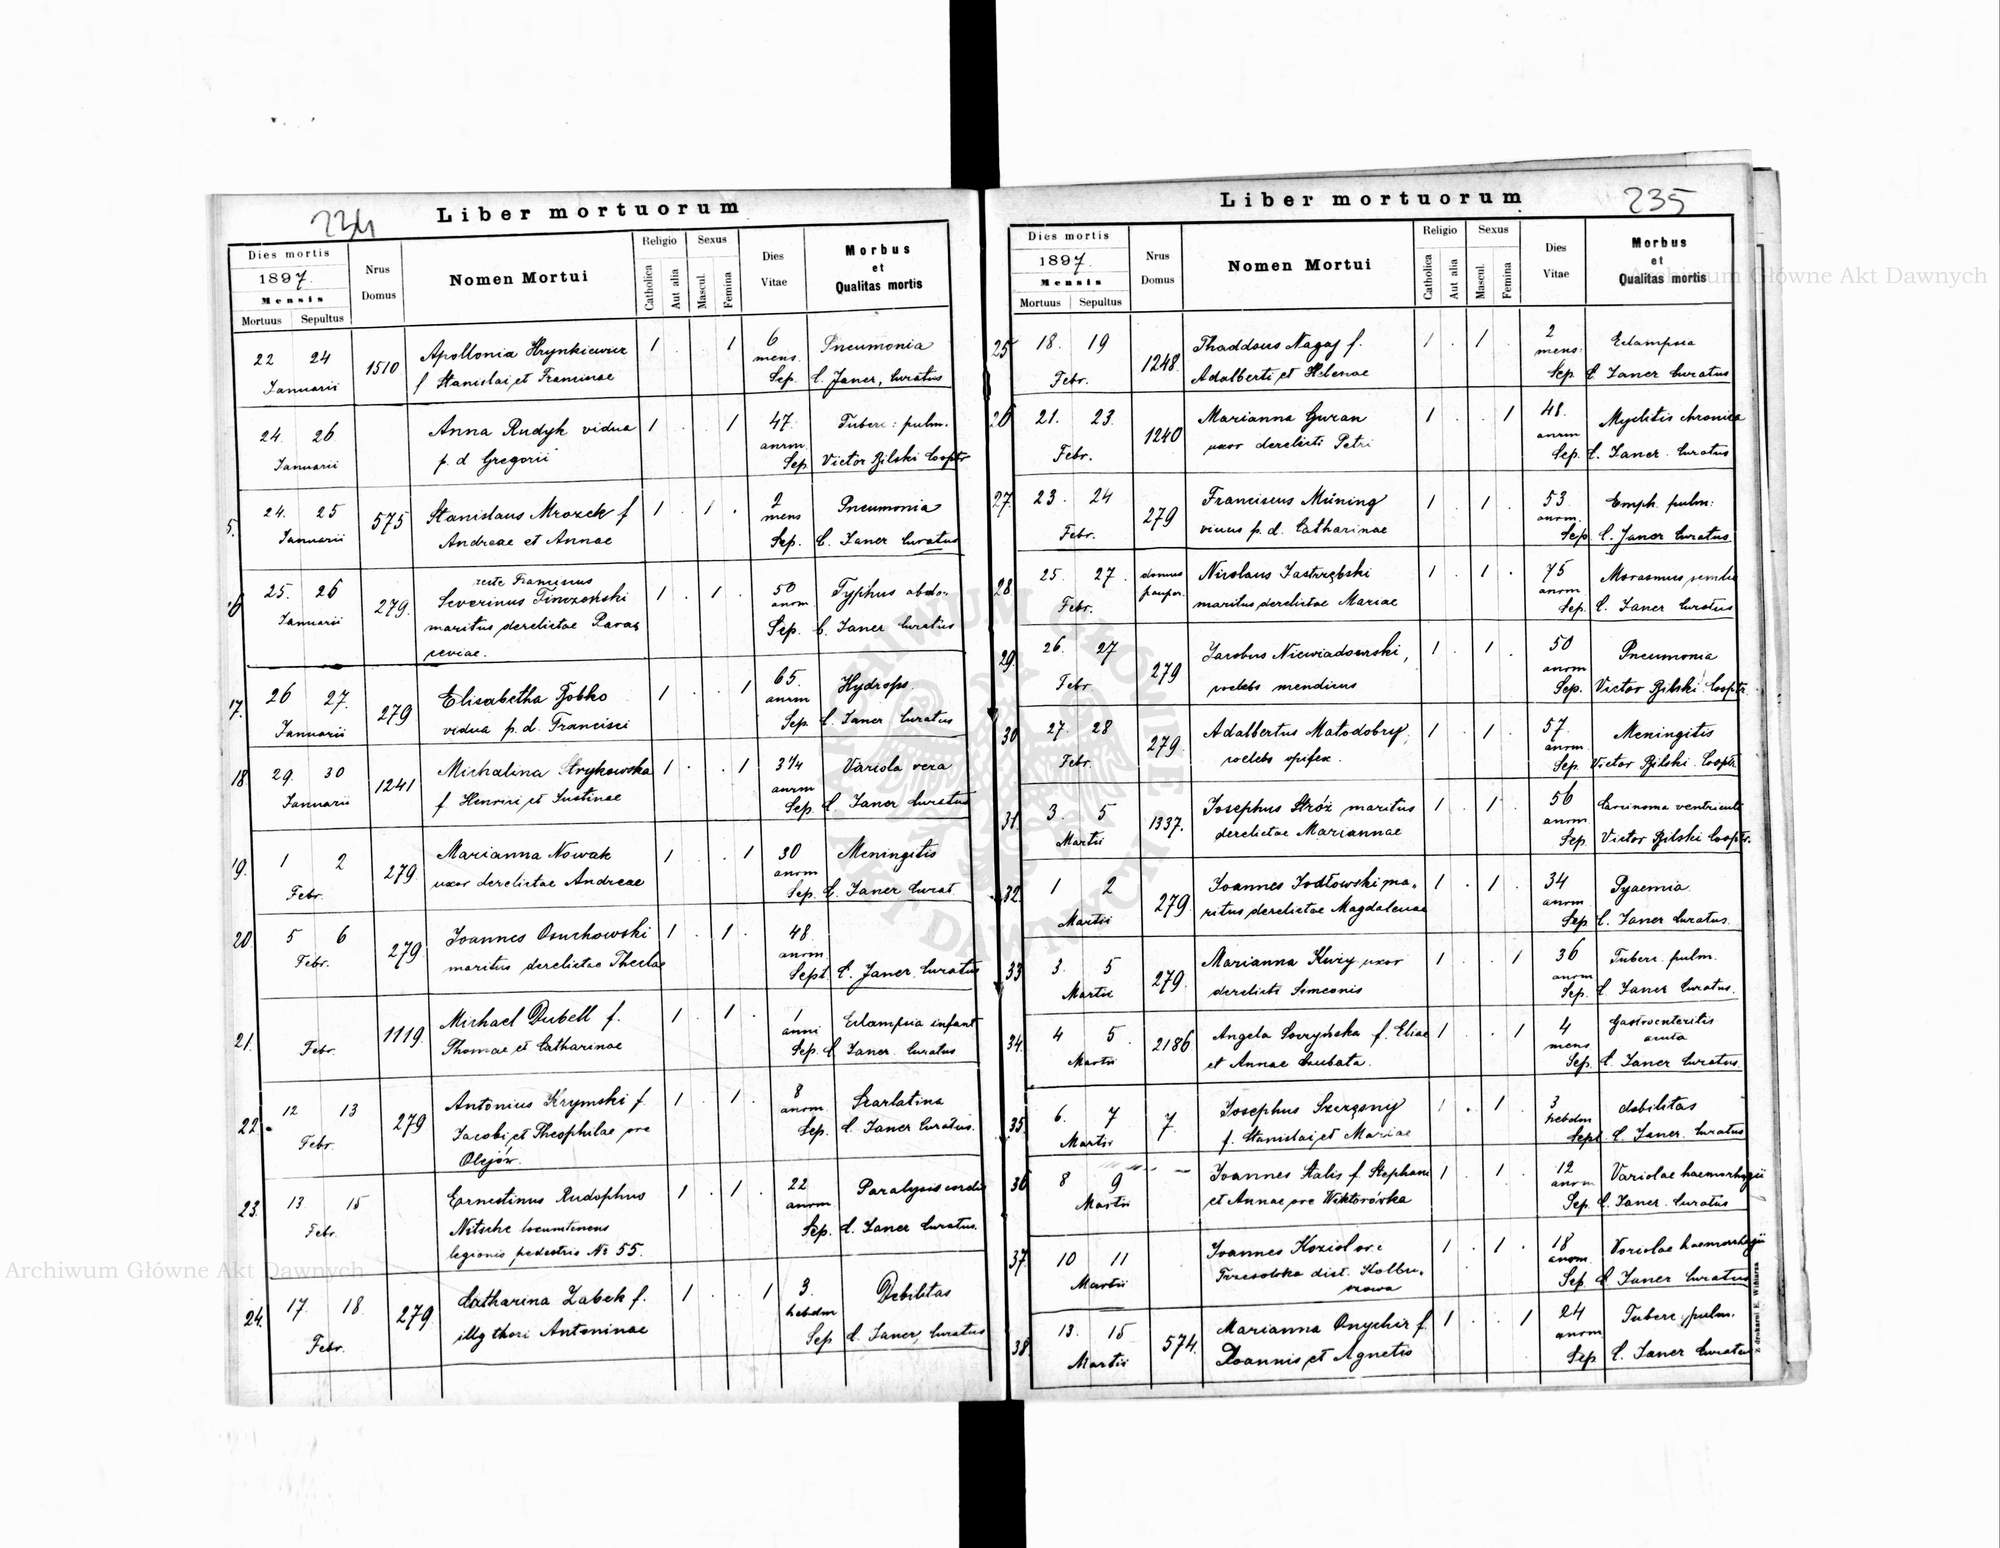 234
Liber mortuorum
Dies mortis
1897.
Mensis
Mortuus Sepultus
Nrus
Domus
Nomen Mortui
Religio
Catholica
Aut alia
Sexus
Mascul.
Femina
Dies
Vitae
Morbus
et
Qualitas mortis
22 24 1510 Apollonia Hrynkiewicz 1 . . 1 6 mens. Pneumonia
Januarii f Stanislai et Franciscae Sep. C. Janer, Curatus
24. 26 Anna Rudyk vidua 1 . . 1 47. anrm Tuberc: pulm.
Januarii p. d Gregorii Sep. Victor Bilski Cooptr
5. 24. 25 575 Stanislaus Mrozek f 1 . 1 . 2 mens Pneumonia
Januarii Andreae et Annae Sep. C. Janer Curatus
recte Franciscus
6 25. 26 279. Severinus 1 . 1 . 50 anrm. Typhus abdo-
Januarii maritus derelictae Paras Sep. C. Janer Curatus
ceviae.
17. 26 27. 279 Elisabetha Bobko 1 . . 1 65. anrm Hydrops.
Januarii vidua p. d. Francisci Sep. C. Janer Curatus
18. 29. 30 1241 Michalina Strykowska 1 . . 1 3 1/4 anrm Variola vera
Januarii f Henrici et Justinae Sep. C. Janer Curatus
19. 1 2 279 Marianna Nowak 1 . . 1 30 anrm Meningitis
Febr. uxor derelictae Andreae Sep. C. Janer Curat.
20. 5 6 279. Joannes Osuchowski 1 . 1 . 48 anrm
Febr. maritus derelictae Theclae Sept. C. Janer Curatus
21. Febr. 1119. Michael Dubell f. 1 . 1 . 1 anni Eclampsia infant
Thomae et Catharinae Sep. C. Janer. Curatus
22. 12 13 279 Antonius Krymski f. 1 . 1 . 8 anrm. Scarlatina
Febr. Jacobi et Theophilae ore Sep. C. Janer Curatus.
Olejów.
23. 13. 15 Ernestinus Rudophus 1 . 1 . 22 anrm Paralysis cordis
Febr. Nitsche locumtenens Sep. C. Janer Curatus.
legionis pedestris № 55.
24. 17. 18. 279. Catharina Zabek f. 1 . . 1 3. hebdm Debilitas
Febr. illg thori Antoninae Sep C. Janer, Curatus
235
Liber mortuorum
Dies mortis
1897.
Mensis
Mortuus Sepultus
Nrus
Domus
Nomen Mortui
Religio
Catholica
Aut alia
Sexus
Mascul.
Femina
Dies
Vitae
Morbus
et
Qualitas mortis
25 18. 19 1248. Thaddeus Nagaj f. 1 . 1 . 2 mens. Eclampsia
Febr. Adalberti et Helenae Sep. C. Janer Curatus
26 21. 23. 1240 Marianna Guran 1 . . 1 48. anrm Myelitis chronica
Febr. uxor derelicti Petri Sep. C. Janer. Curatus
27. 23. 24 279 Franciscus Müning 1 . 1 . 53. anrm. Emph. pulm:
Febr. viduus p. d. Catharinae Sep. C. Janer Curatus.
28. 25. 27. domus pauper. Nicolaus Jastrzębski 1 . 1 . 75 anrm. Marasmus senilis
Febr. maritus derelictae Mariae Sep. C. Janer Curatus
29. 26. 27 279 Jacobus Niewiadowski, 1 . 1 . 50 anrm Pneumonia
Febr coelebs mendicus Sep. Victor Bilski Cooptr.
30 27. 28 279. Adalbertus Małodobry, 1 . 1 . 57. anrm. Meningitis
Febr. coelebs opifex. Sep. Victor Bilski. Cooptr
31. 3. 5 1337. Josephus Stróż maritus 1 . 1 . 56 anrm. Carcinoma ventriculi
Martii derelictae Mariannae Sep. Victor Bilski Cooptr.
32. 1 2 279. Joannes Jodłowski ma- 1 . 1 . 34 anrm. Pyaemia
Martii ritus derelictae Magdalenae Sep. C. Janer Curatus.
33 3. 5 279. Marianna uxor 1 . . 1 36 anrm Tuberc. pulm.
Martii derelicti Simeonis Sep. C. Janer Curatus.
34. 4 5. 2186 Angela f. Eliae 1 . . 1 4 mens Gastroenteritis
acuta
Martii et Annae Czubata. Sep. C. Janer Curatus.
35. 6. 7 7. Josephus Szczęsny 1 . 1 . 3 hebdm debilitas
Martii f. Stanislai et Mariae Sept. C. Janer. Curatus
36 8 9 Joannes Stalis f. Stephani 1 . 1 . 12 anrm Variolae haemorhagii
Martii et Annae ore Wiktorówka Sep. C. Janer. Curatus
37. 10 11 Joannes Kozioł or. 1 . 1 . 18 anrm. Variolae haemorhagii
Martii dist. Kolbu- Sep. C. Janer Curatus
szowa
38. 13. 15 574. Marianna Onychir f. 1 . . 1 24 anrm Tuberc. pulm.
Martii Joannis et Agnetis Sep C. Janer Curatus
Z drukarni E. Winiarza
Archiwum Główne Akt Dawnych
Archiwum Główne Akt Dawnych
ARCHIWUM GŁÓWNE AKT DAWNYCH